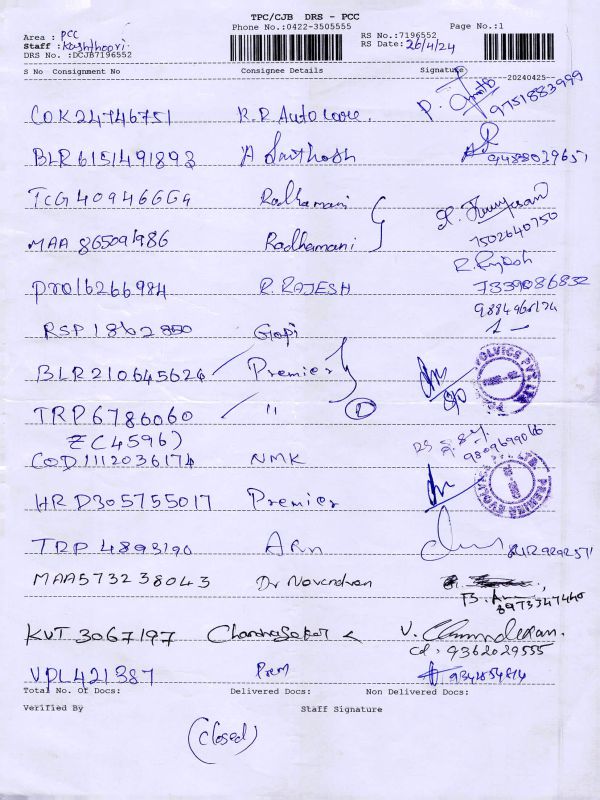 TPC/CJB DRS - PCC
Phone No.:0422-3505555
Area : PCC
Staff : Kashthoori
DRS No. :DCJB7196552
RS No.:7196552
RS Date: 26/4/24
Page No.:1
S No Consignment No Consignee Details Signature
20240425
COK24746751 R.R Autocare. 9751883999
BLR6151491893 A Santhosh 9488029651
TCG409466G9 Radhamani
7502640750
MAA 865091986 Radhamani
R. Rajesh
PRO16266984 R. RAJESH 7339086832
9884961174
RSP1862850 Gopi
BLR210645626 Premier
TRP6786060 " 1
Z(4596)
9809699066
COD1112036174 NMK
HRD305755017 Premier
TRP 4893190 Arn
MAA573238043 Dr Novendran
8973347440
KVT 3067197 Chandrasekar V. Chandrasekaran.
Cd: 9362029555
VPL421387 Prem 9342854814
Total No. Of Docs: Delivered Docs: Non Delivered Docs:
Verified By Staff Signature
(Closed)